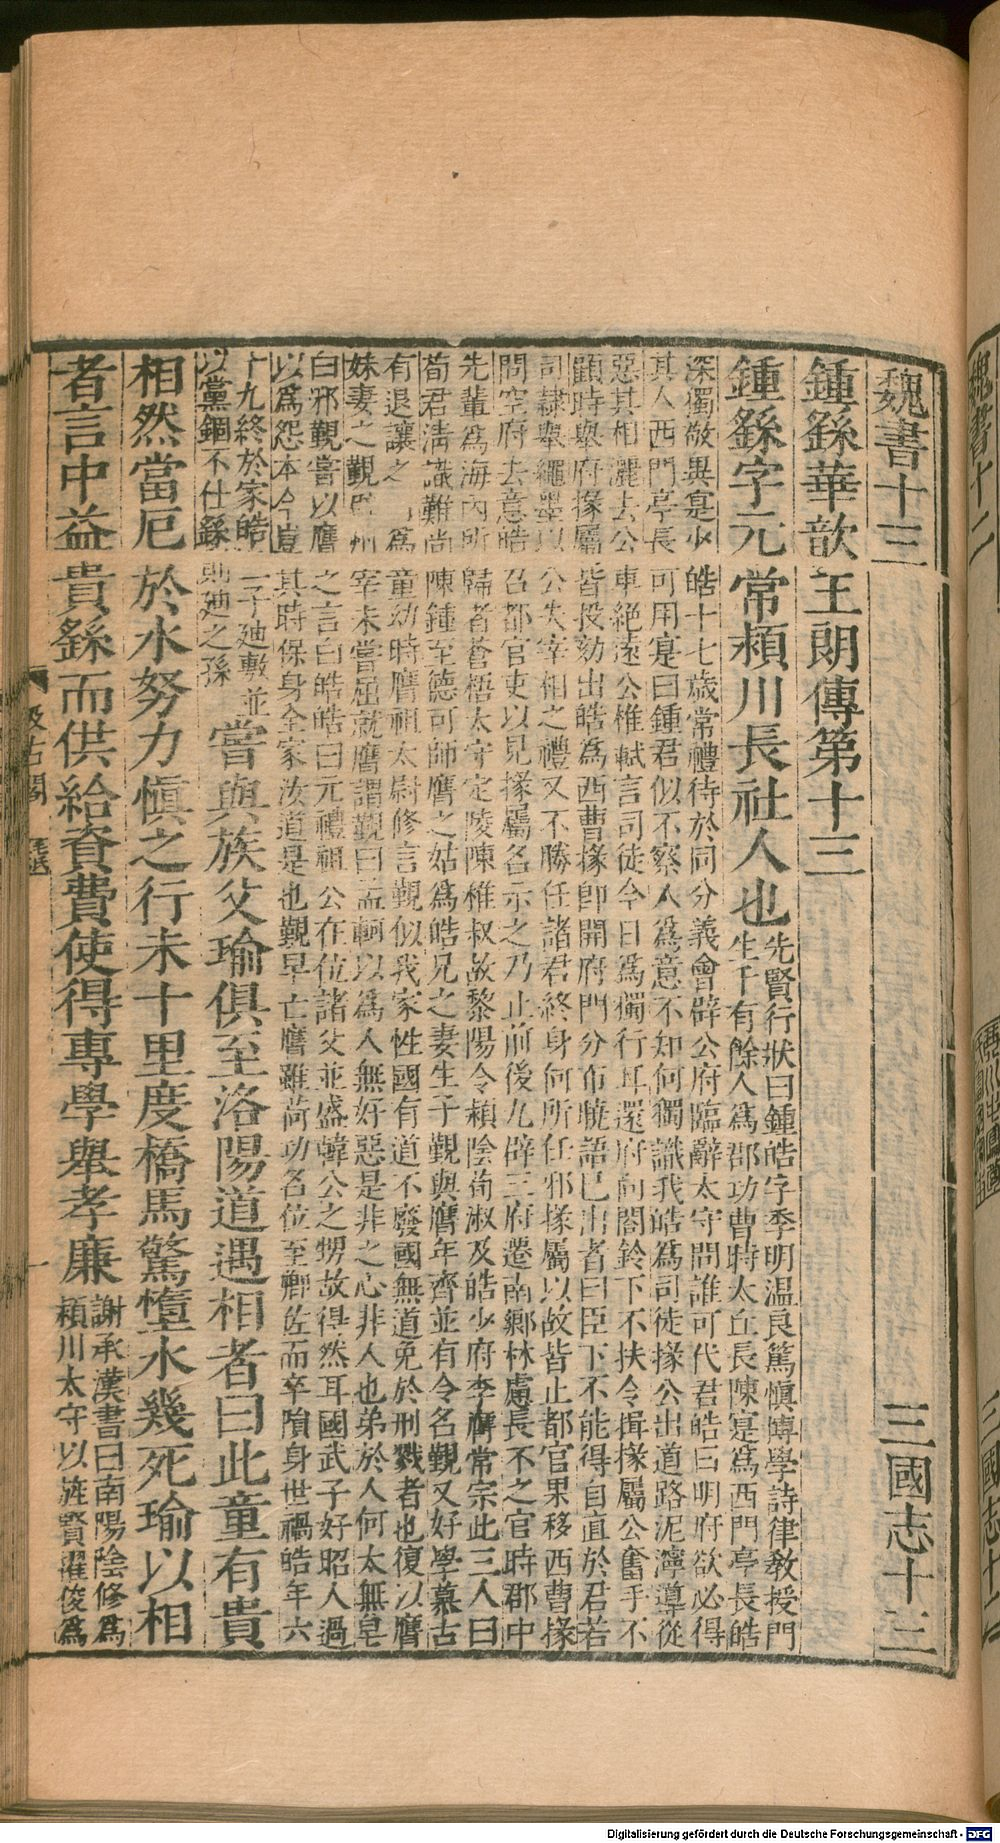 魏書十三 三國志十三
鍾繇華歆王朗傳第十三
鍾繇字元常潁川長社人也
先賢行狀曰鍾皓字季明温良篤愼博學詩律敎授門
生千有餘人爲郡功曹時太丘長陳寔爲西門亭長皓
深獨敬異寔少皓十七歲常禮待於同分義會辟公府臨辭太守問誰可代君皓曰明府欲必得
其人西門亭長可用寔曰鍾君似不察人爲意不知何獨識我皓爲司徒掾公出道路泥濘導從
惡其相灑去公車絕遠公椎軾言司徒今日爲獨行耳還府向閤鈴下不扶令揖掾屬公奮手不
顧時舉府掾屬皆投劾出皓爲西曹掾卽開府門分布曉語已出者曰臣下不能得自直於君若
司隸舉繩墨以公失宰相之禮又不勝任諸君終身何所任邪掾屬以故皆止都官果移西曹掾
問空府去意皓召都官吏以見掾屬名示之乃止前後九辟三府遷南鄉林慮長不之官時郡中
先輩爲海內所歸者蒼梧太守定陵陳稚叔故黎陽令潁陰荀淑及皓少府李膺常宗此三人曰
荀君淸識難尚陳鍾至德可師膺之姑爲皓兄之妻生子覲與膺年齊並有令名覲又好學慕古
有退讓之爲童幼時膺祖太尉修言覲似我家性國有道不廢國無道免於刑戮者也復以膺
妹妻之覲州宰未嘗屈就膺謂覲曰孟軻以爲人無好惡是非之心非人也弟於人何太無皂
白邪覲嘗以膺之言白皓皓曰元禮祖公在位諸父並盛韓公之甥故得然耳國武子好昭人過
以爲怨本今豈其時保身全家汝道是也覲早亡膺雖荷功名位至卿佐而卒隕身世禍皓年六
十九終於家皓二子迪敷並
以黨錮不仕繇則迪之孫
嘗與族父瑜俱至洛陽道遇相者曰此童有貴
相然當厄於水努力愼之行未十里度橋馬驚墮水幾死瑜以相
者言中益貴繇而供給資費使得專學舉孝廉
謝承漢書曰南陽陰修爲
潁川太守以旌賢擢俊爲
汲古閣
一
魏書十二
三國志十二
Digitalisierung gefördert durch die Deutsche Forschungsgemeinschaft - DFG